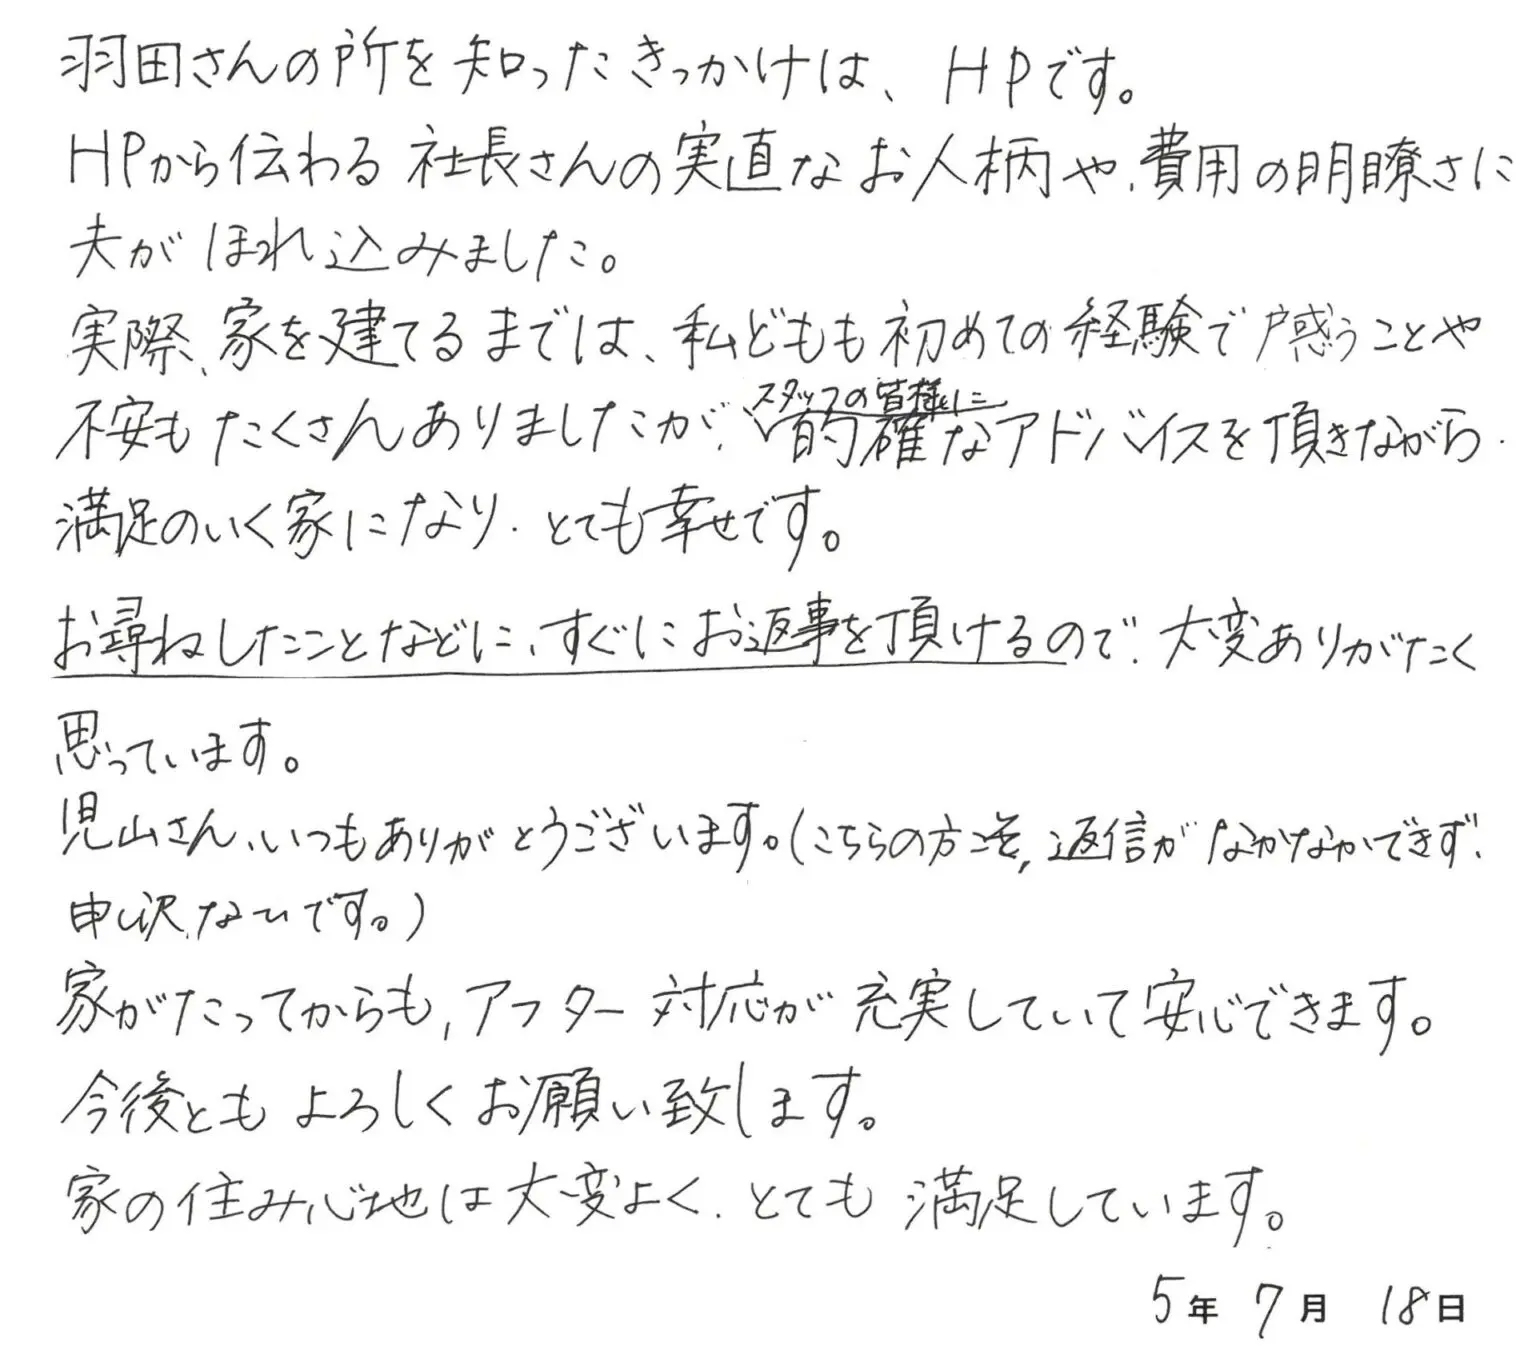 羽田さんの所を知ったきっかけは、HPです。
HPから伝わる社長さんの実直なお人柄や、費用の明瞭さに
夫がほれ込みました。
実際、家を建てるまでは、私どもも初めての経験で戸惑うことや
スタッフの皆様に
不安もたくさんありましたが、的確なアドバイスを頂きながら、
満足のいく家になり、とても幸せです。
お尋ねしたことなどに、すぐにお返事を頂けるので、大変ありがたく
思っています。
児山さん、いつもありがとうございます。(こちらの方こそ、返信がなかなかできず、
申し訳ないです。)
家がたってからも、アフター対応が充実していて安心できます。
今後ともよろしくお願い致します。
家の住み心地は大変よく、とても満足しています。
5年 7月 18日